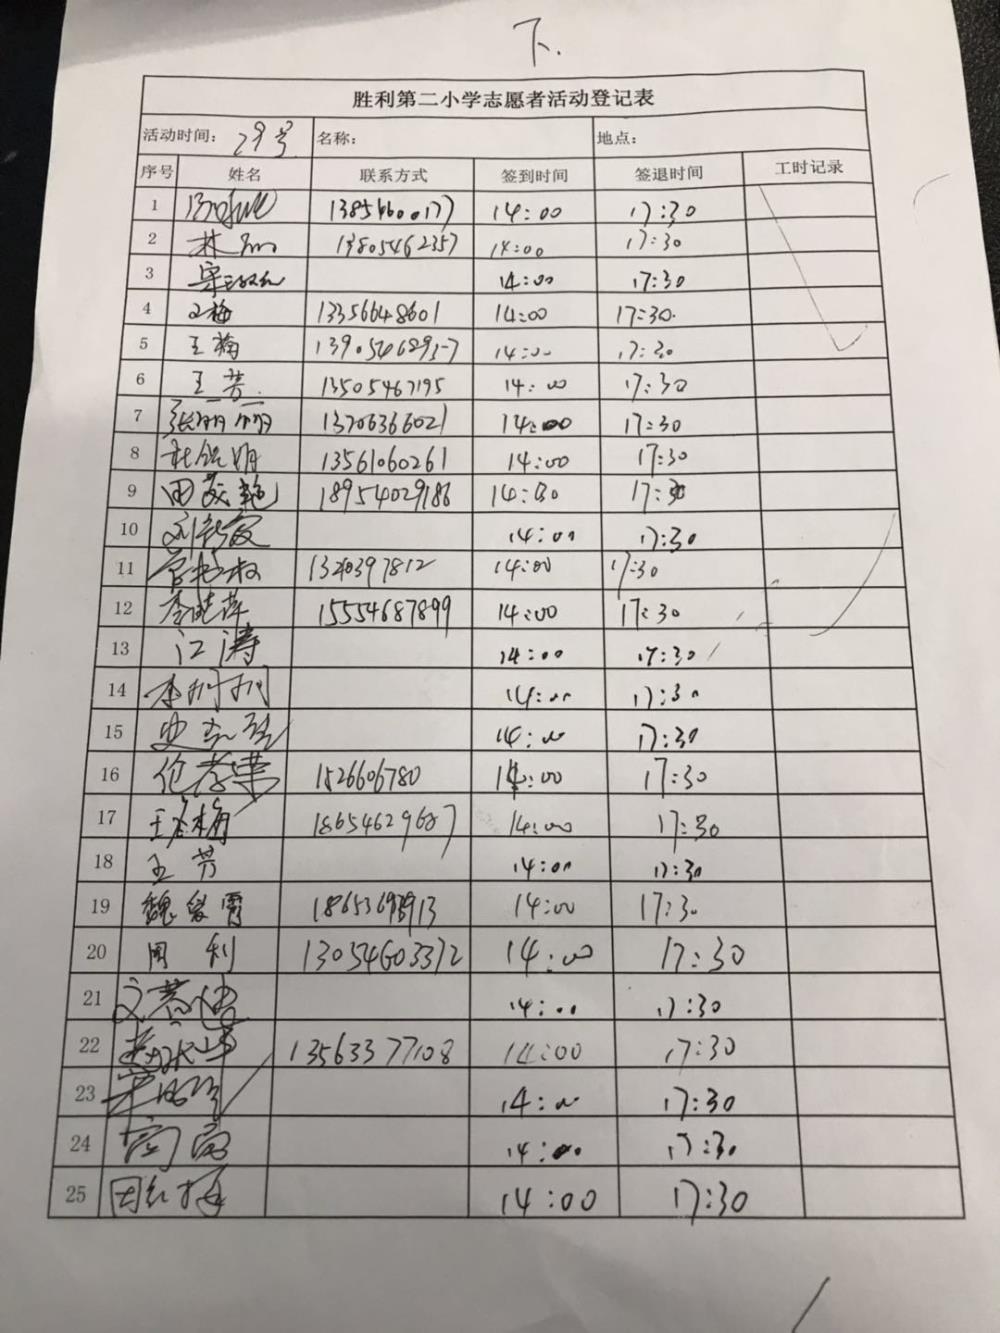 下.
胜利第二小学志愿者活动登记表
活动时间: 29号 名称: 地点:
序号 姓名 联系方式 签到时间 签退时间 工时记录
1 14:00 17:30
2 林 13805462357 14:00 17:30
3 14:00 17:30
4 王梅 13356648601 14:00 17:30.
5 王梅 14:00 17:30
6 王芳. 13505467195 14:00 17:30
7 张丽丽 13706366021 14:00 17:30
8 杜 明 13561060261 14:00 17:30
9 田茂艳 18954029186 14:30 17:30
10 刘 14:00 17:30
11 14:00 17:30
12 李晓萍 15554687899 14:00 17:30
13 江涛 14:00 17:30
14 李 14:00 17:30
15 史 14:00 17:30
16 伦孝荣 1526606780 14:00 17:30
17 王 梅 14:00 17:30
18 王芳 14:00 17:30
19 魏爱霄 14:00 17:30
20 周利 13054603372 14:00 17:30
21 14:00 17:30
22 13563377108 14:00 17:30
23 14:00 17:30
24 14:00 17:30
25 田红梅 14:00 17:30